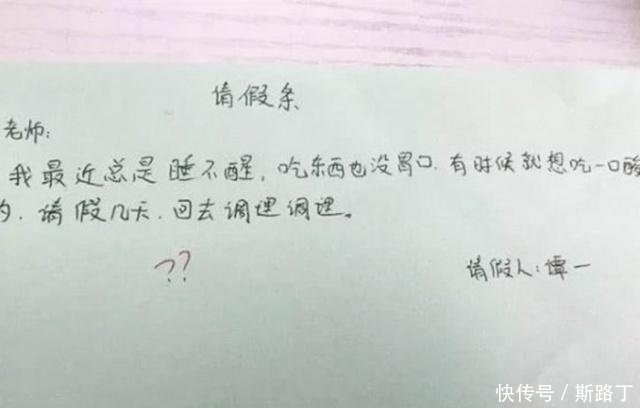 请假条
老师:
我最近总是睡不醒，吃东西也没胃口.有时候就想吃一口酸
的.请假几天.回去调理调理。
??
请假人:谭一
快传号／斯路丁